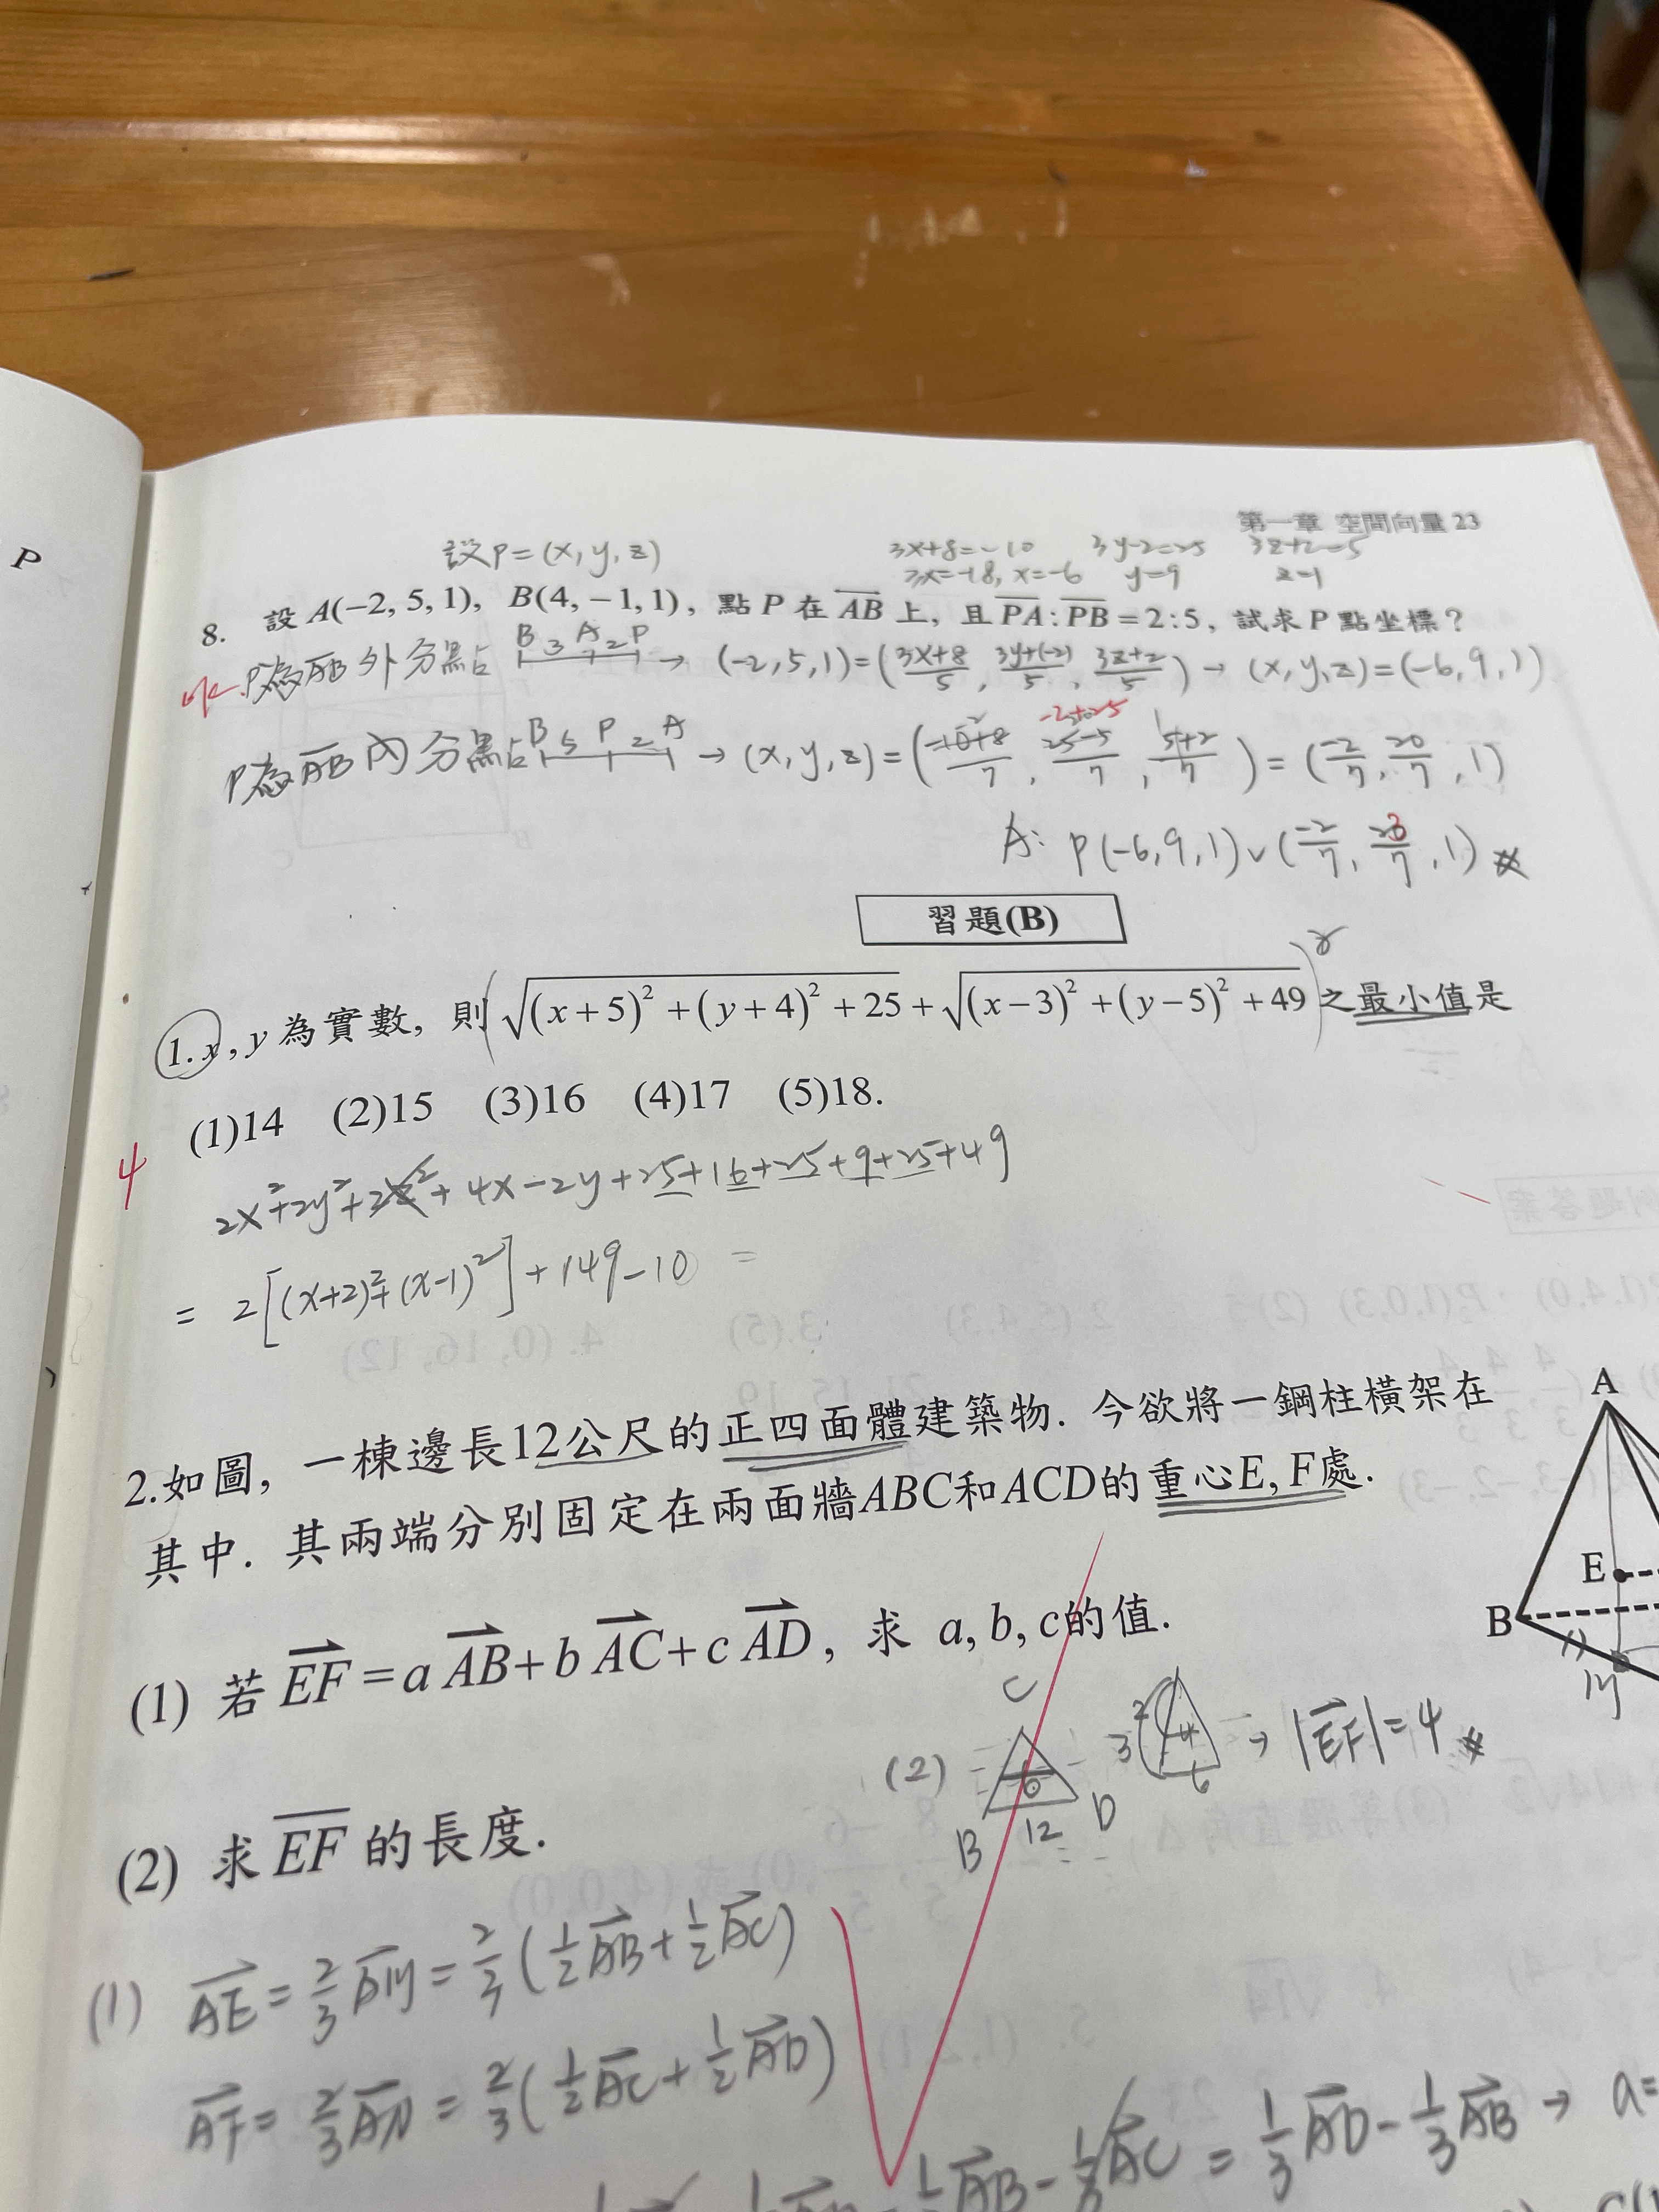 P
第一章 空間向量 23
設P=(x, y, z)
3x+8=-10 3y-2=25 3z+2=5
3x=-18, x=-6 y=9 z=1
8. 設 A(−2, 5, 1), B(4, −1, 1), 點 P 在 AB 上, 且 PA : PB = 2 : 5, 試求 P 點坐標?
P為AB外分點 B 3 A 2 P → (-2, 5, 1) = (3x+8/5, 3y+(-2)/5, 3z+2/5) → (x, y, z) = (-6, 9, 1)
-2+25
P為AB內分點 B 5 P 2 A → (x, y, z) = (-10+8/7, 25-5/7, 5+2/7) = (-2/7, 20/7, 1)
A: P(-6, 9, 1) ∨ (-2/7, 23/7, 1)
習題(B)
1. x, y 為實數, 則 (√(x+5)² + (y+4)² + 25 + √(x−3)² + (y−5)² + 49)² 之最小值是
(1)14 (2)15 (3)16 (4)17 (5)18.
4
2x²+2y²+2z²+4x-2y+25+16+25+9+25+49
= 2[(x+2)²+(x-1)²]+149-10 =
2.如圖, 一棟邊長12公尺的正四面體建築物. 今欲將一鋼柱橫架在
其中. 其兩端分別固定在兩面牆ABC和ACD的重心E, F處.
A
E
B
M
(1) 若 EF = a AB + b AC + c AD, 求 a, b, c的值.
(2) C 6 B 12 D 2 3 4 6 → |EF| = 4
(2) 求 EF 的長度.
(1) AE = 2/3 AM = 2/3 (1/2 AB + 1/2 AC)
AF = 2/3 AN = 2/3 (1/2 AC + 1/2 AD)
AB - 1/3 AC = 1/3 AD - 1/3 AB → a=